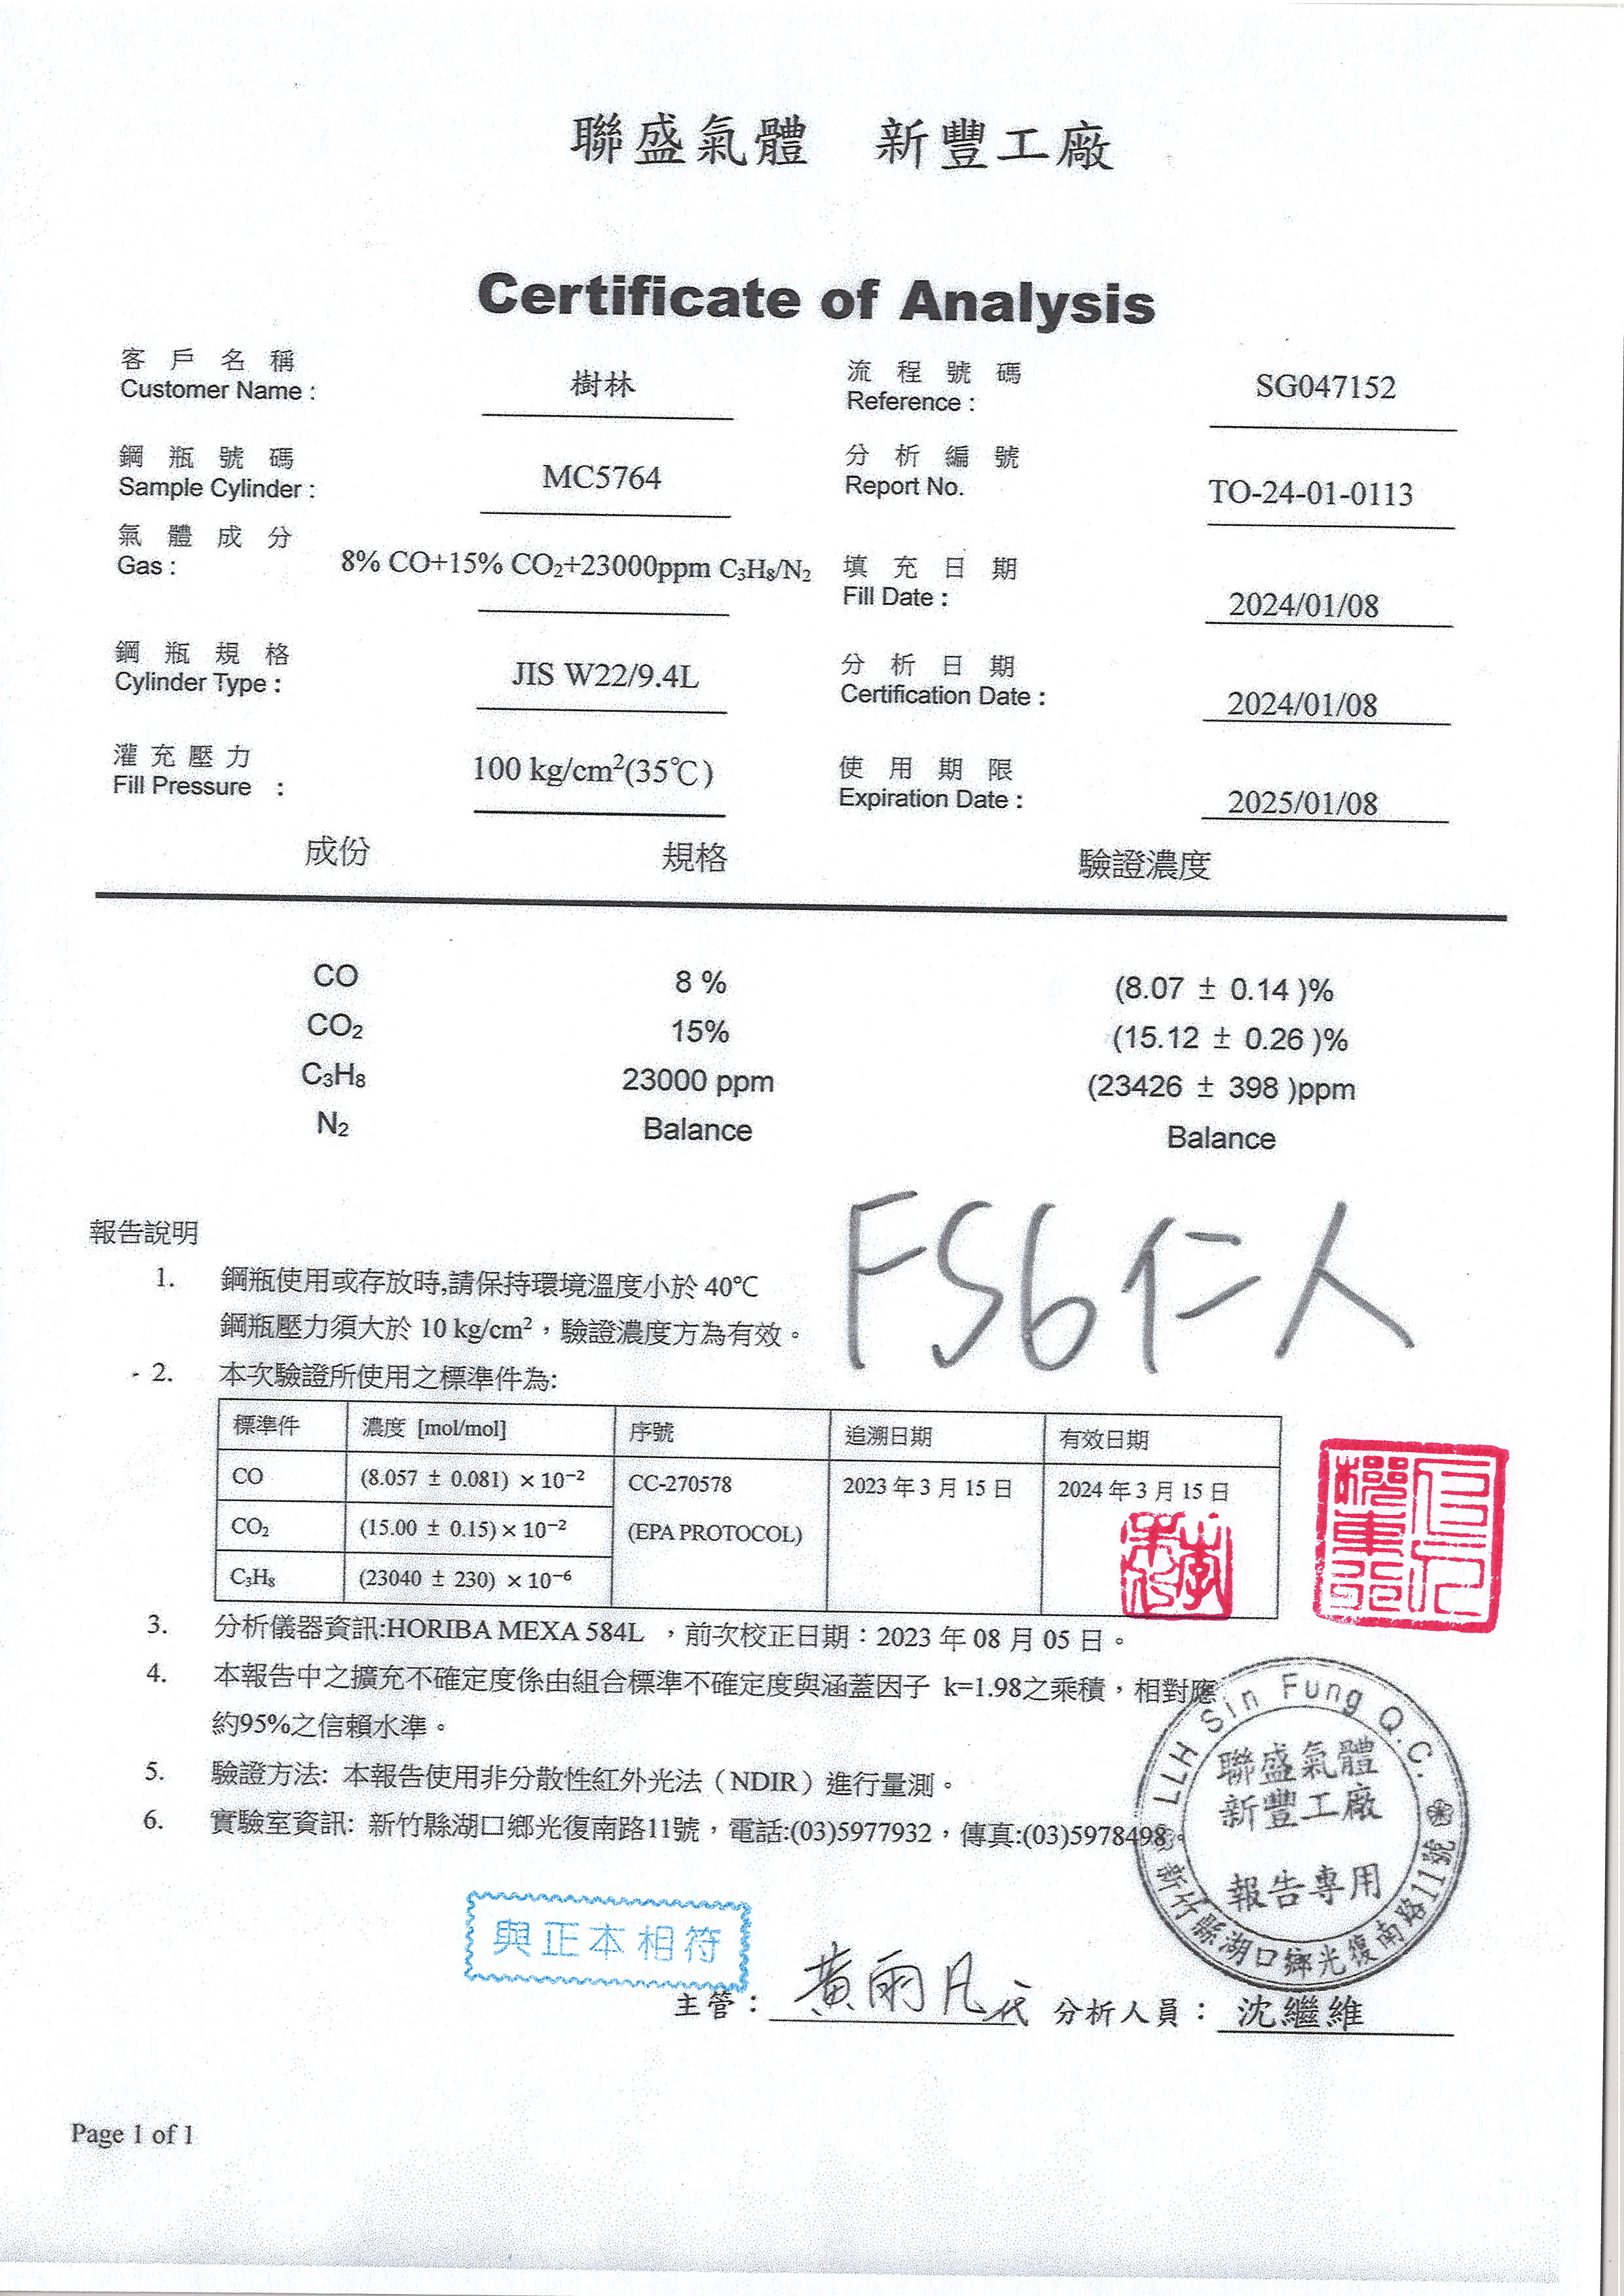 聯盛氣體 新豐工廠
Certificate of Analysis
客戶名稱
Customer Name :
樹林
流程號碼
Reference :
SG047152
鋼瓶號碼
Sample Cylinder :
MC5764
分析編號
Report No.
TO-24-01-0113
氣體成分
Gas :
8% CO+15% CO₂+23000ppm C₃H₈/N₂
填充日期
Fill Date :
2024/01/08
鋼瓶規格
Cylinder Type :
JIS W22/9.4L
分析日期
Certification Date :
2024/01/08
灌充壓力
Fill Pressure :
100 kg/cm²(35℃)
使用期限
Expiration Date :
2025/01/08
成份 規格 驗證濃度
CO 8 % (8.07 ± 0.14 )%
CO₂ 15% (15.12 ± 0.26 )%
C₃H₈ 23000 ppm (23426 ± 398 )ppm
N₂ Balance Balance
FS6仁人
報告說明
1. 鋼瓶使用或存放時,請保持環境溫度小於 40℃
鋼瓶壓力須大於 10 kg/cm²，驗證濃度方為有效。
2. 本次驗證所使用之標準件為:
標準件 濃度 [mol/mol] 序號 追溯日期 有效日期
CO (8.057 ± 0.081) ×10⁻² CC-270578 2023 年 3 月 15 日 2024 年 3 月 15 日
CO₂ (15.00 ± 0.15)×10⁻² (EPA PROTOCOL)
C₃H₈ (23040 ± 230) ×10⁻⁶
3. 分析儀器資訊:HORIBA MEXA 584L ，前次校正日期：2023 年 08 月 05 日。
4. 本報告中之擴充不確定度係由組合標準不確定度與涵蓋因子 k=1.98之乘積，相對應
約95%之信賴水準。
5. 驗證方法: 本報告使用非分散性紅外光法（NDIR）進行量測。
6. 實驗室資訊: 新竹縣湖口鄉光復南路11號，電話:(03)5977932，傳真:(03)5978498。
LLH Sin Fung Q.C.
聯盛氣體
新豐工廠
報告專用
新竹縣湖口鄉光復南路11號
與正本相符
主管： 黃雨凡代 分析人員： 沈繼維
Page 1 of 1